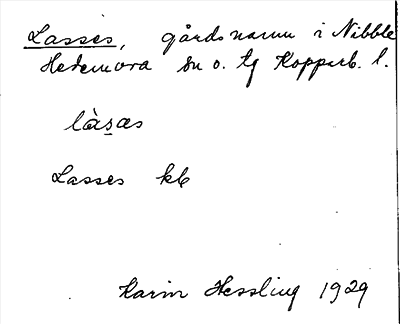 Lasses, gårdsnamn i Nibble
Hedemora sn o. tg Kopparb. l.
làsas
Lasses kb
Karin Hessling 1929